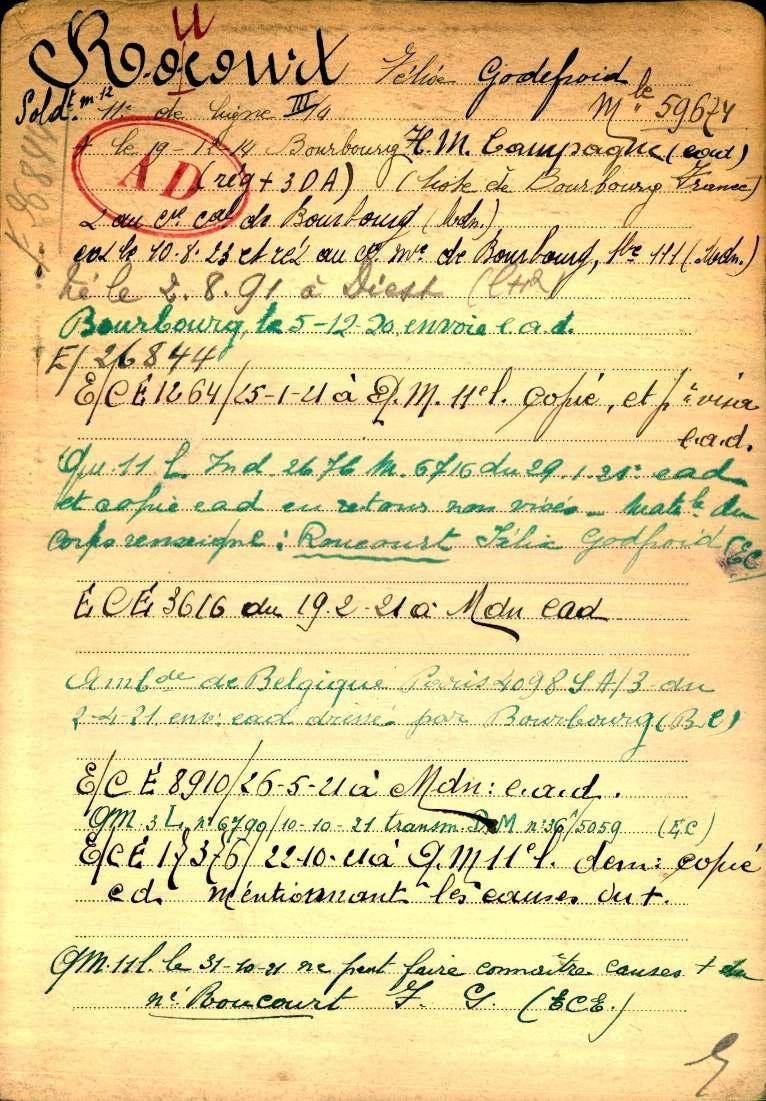 u
Rocourt Félix Godefroid
Soldt. mre 11e de Ligne III/4 Mle 59674
+ le 19-12-14 Bourbourg H.M. Campagne (cout)
AD (rég + 3 D A) (liste de Bourbourg France)
au cre cal de Bourbourg (Mdn.)
ex le 10.8.23 et ré au cre de Bourbourg, tbe 111 (Mdn.)
Né le 2.8.91 à Diest
Bourbourg, le 5-12-20, envoie e.a.d.
E/ 26844
E/CE 1264/25-1-21 à Q.M. 11e l. copié, et pr visa
e.a.d.
Qu. 11 L Ind 2676 M. 6716 du 29.1.21: ead
et copie ead en retour non visés – Matle du
corps renseigne : Roucourt Félix Godfroid (EC
E C E 3616 du 19.2-21 à Mdn ead
Ambde de Belgique Paris 4098 S A/3 du
2-4-21 env: ead dressé par Bourbourg (B.C)
E/CE 8910/26-5-21 à Mdn: e.a.d.
QM 3 L, n° 6790/10-10-21 transm. D.M n° 36/5059 (EC)
E/CE 17376/22-10-21 à Q M 11e l. dem: copie
e d. mentionnant les causes du +.
QM. 11 l. le 31-10-21 ne peut faire connaître causes + du
né Roucourt F. G. (E.C.E.)